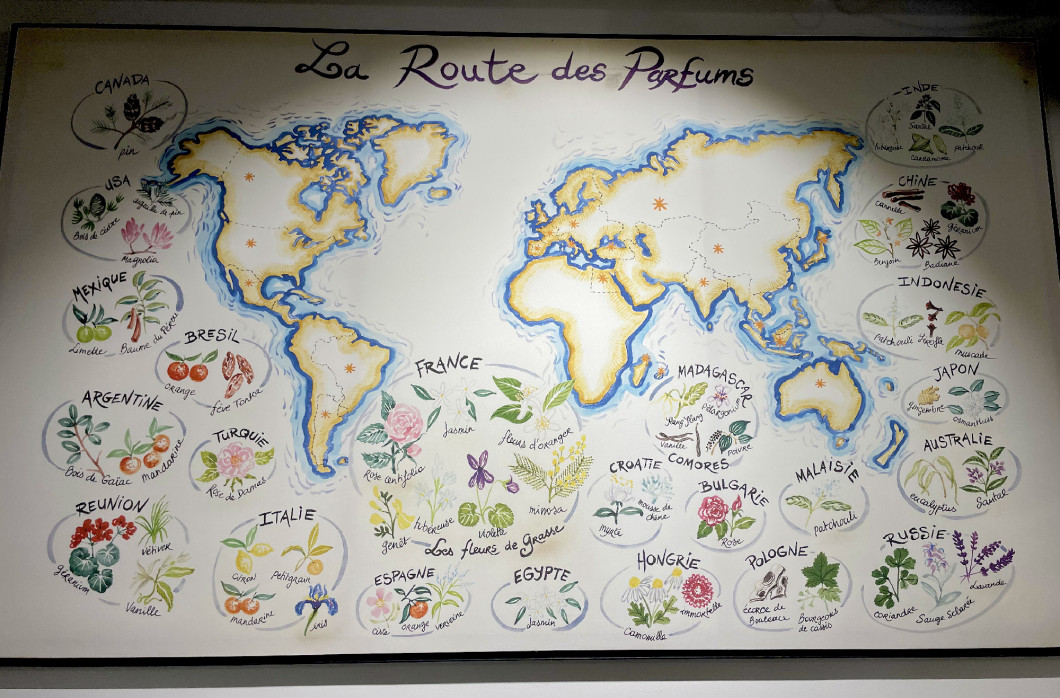 La Route des Parfums
CANADA
pin
USA
Bois de cèdre
aiguille de pin
Magnolia
MEXIQUE
Limette
Baume du Pérou
BRESIL
orange
fève Tonka
ARGENTINE
Bois de Gaïac
mandarine
TURQUIE
Rose de Damas
REUNION
géranium
Vétiver
Vanille
ITALIE
citron
Petitgrain
mandarine
iris
FRANCE
Jasmin
fleurs d'oranger
Rose Centifolia
genêt
tubéreuse
violette
mimosa
Les fleurs de Grasse
ESPAGNE
orange
verveine
EGYPTE
Jasmin
INDE
Santal
tubéreuse
Cardamome
patchouli
CHINE
Cannelle
géranium
Benjoin
Badiane
INDONESIE
Patchouli
Girofle
muscade
JAPON
gingembre
osmanthus
AUSTRALIE
eucalyptus
Santal
MADAGASCAR
Ylang Ylang
Pélargonium
Vanille
Poivre
COMORES
CROATIE
myrte
mousse de chêne
BULGARIE
Rose
MALAISIE
patchouli
HONGRIE
Camomille
immortelle
POLOGNE
écorce de
Bouleaux
Bourgeons
de cassis
RUSSIE
coriandre
Sauge Sclarée
Lavande